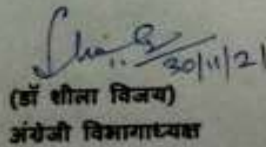 30/11/21
(डॉ शीला विजय)
अंग्रेजी विभागाध्यक्ष